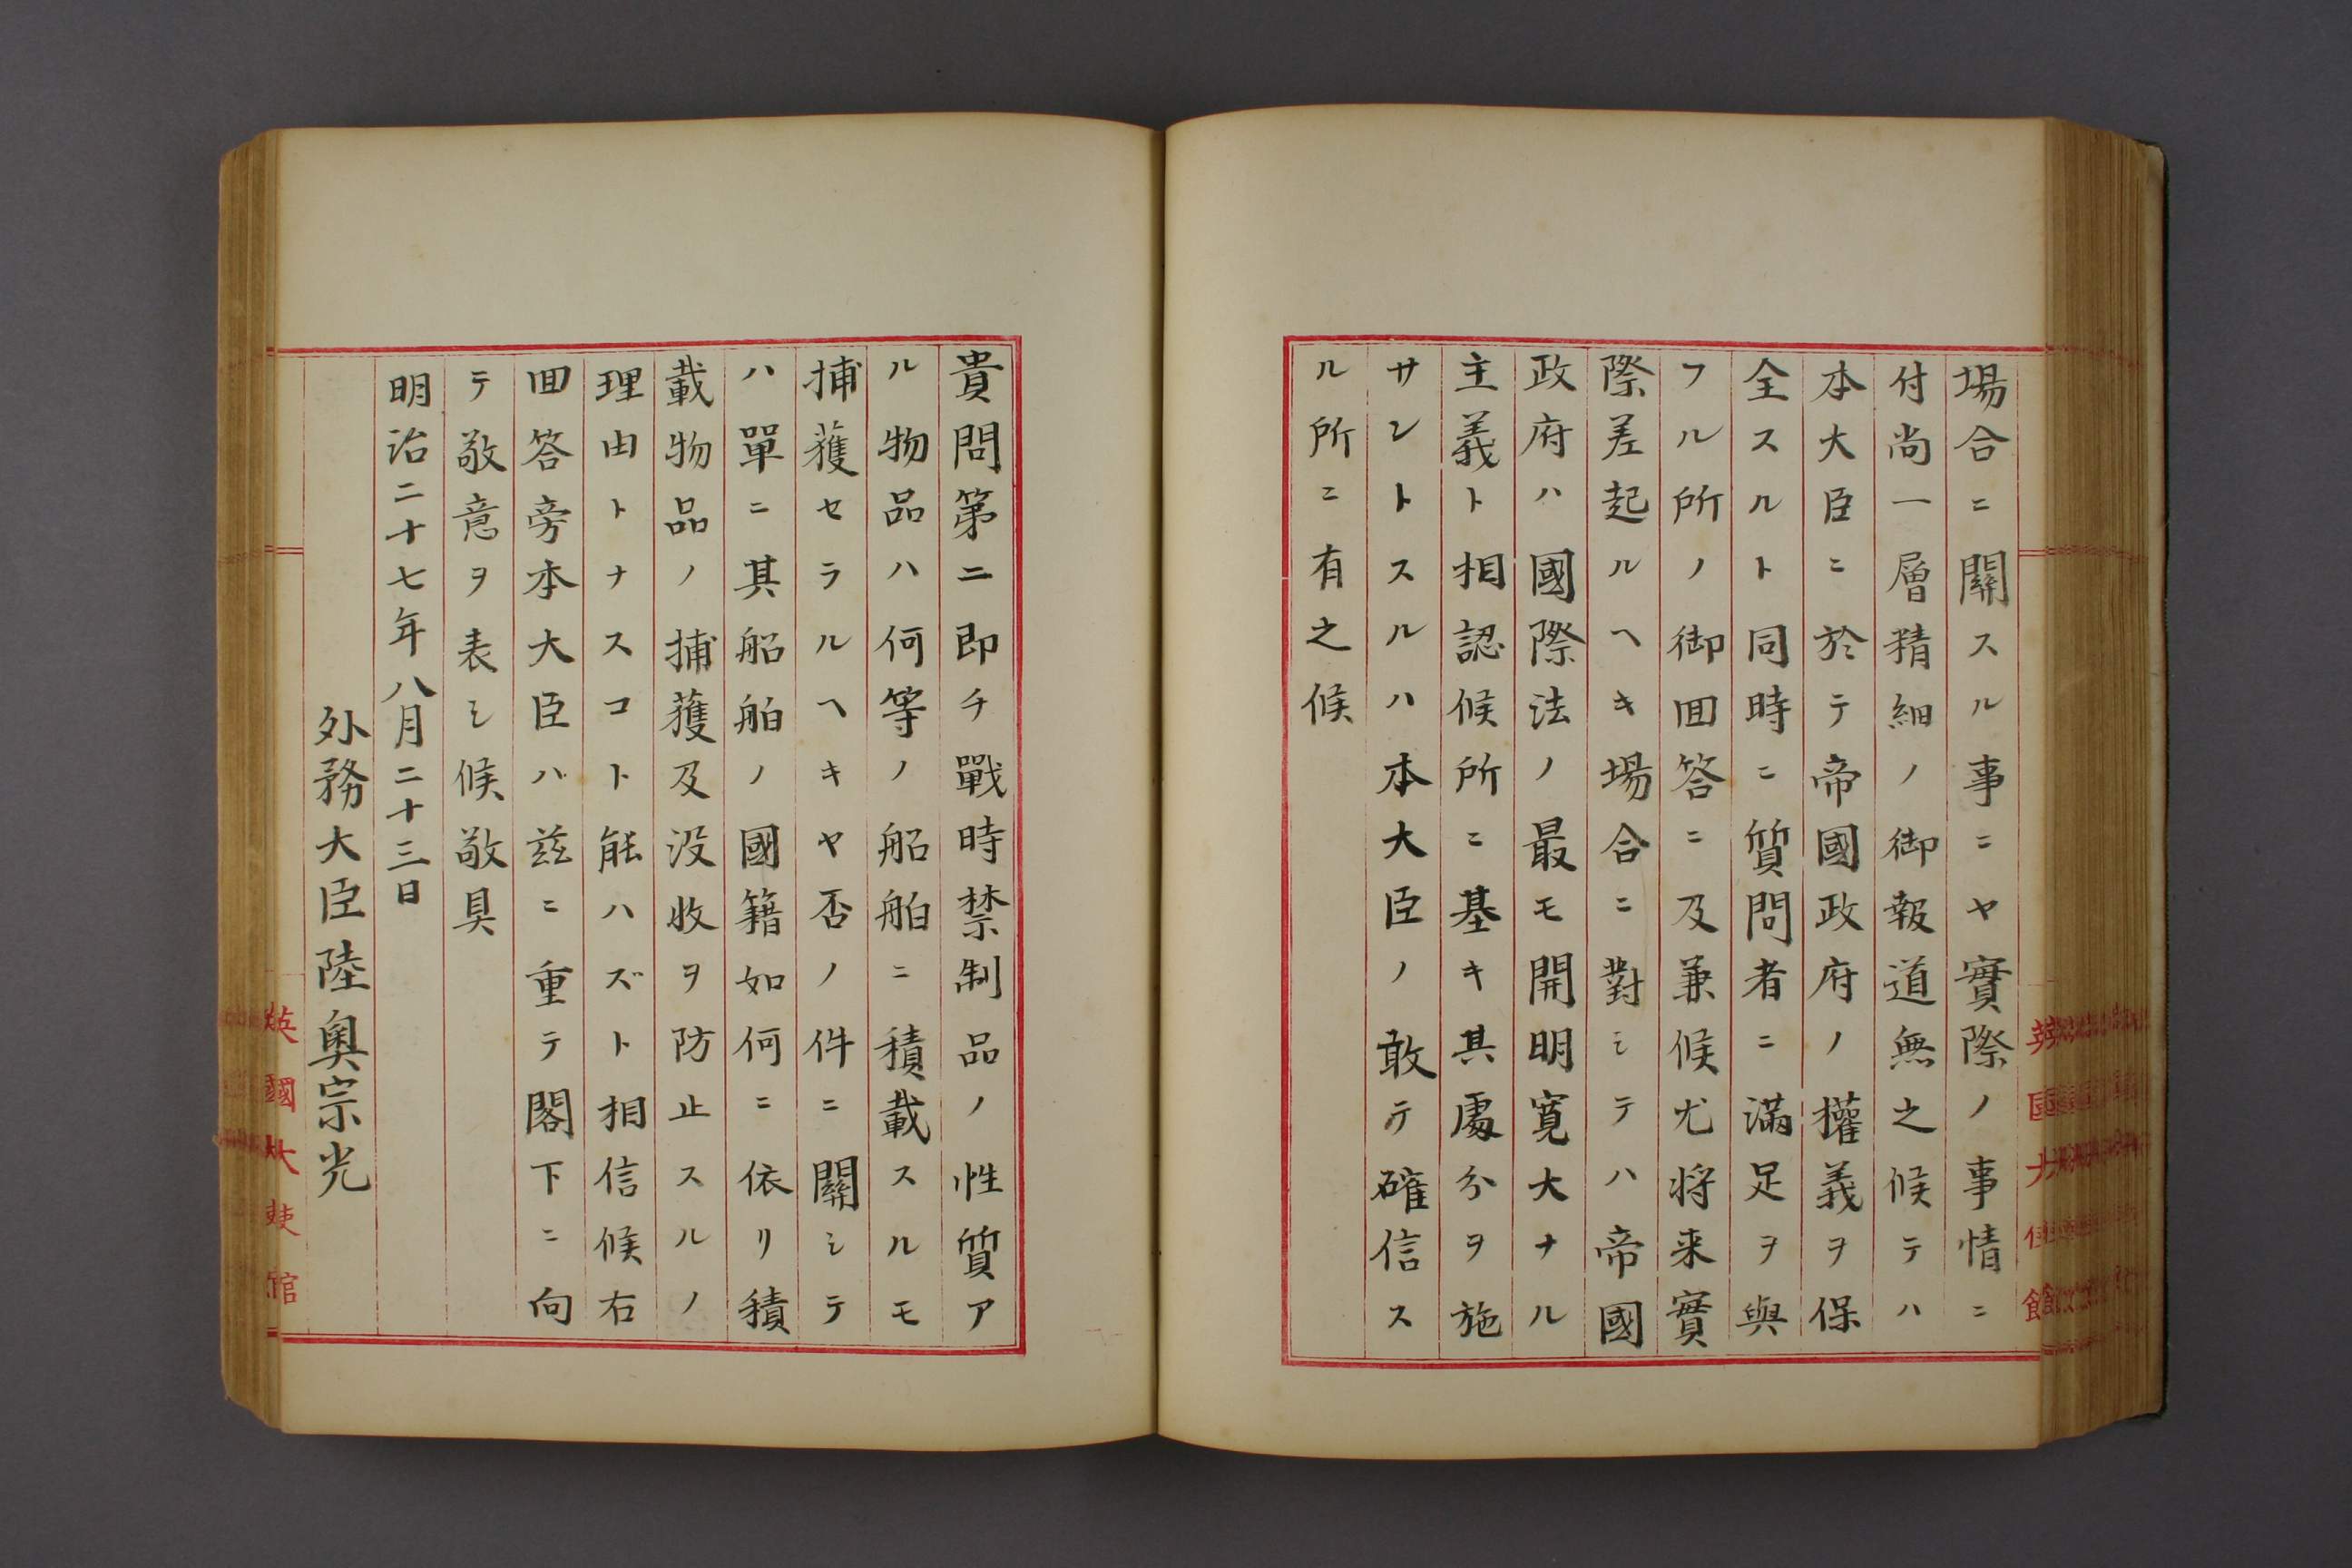 場合ニ關スル事ニヤ實際ノ事情ニ
付尚一層精細ノ御報道無之候テハ
本大臣ニ於テ帝國政府ノ權義ヲ保
全スルト同時ニ質問者ニ滿足ヲ與
フル所ノ御回答ニ及兼候尤将来實
際差起ルヘキ場合ニ對シテハ帝國
政府ハ國際法ノ最モ開明寛大ナル
主義ト相認候所ニ基キ其處分ヲ施
サントスルハ本大臣ノ敢テ確信ス
ル所ニ有之候
英國大使館
貴問第二即チ戰時禁制品ノ性質ア
ル物品ハ何等ノ船舶ニ積載スルモ
捕獲セラルヘキヤ否ノ件ニ關シテ
ハ單ニ其船舶ノ國籍如何ニ依リ積
載物品ノ捕獲及没收ヲ防止スルノ
理由トナスコト能ハズト相信候右
回答旁本大臣ハ茲ニ重テ閣下ニ向
テ敬意ヲ表シ候敬具
明治二十七年八月二十三日
外務大臣陸奥宗光
英國大使館